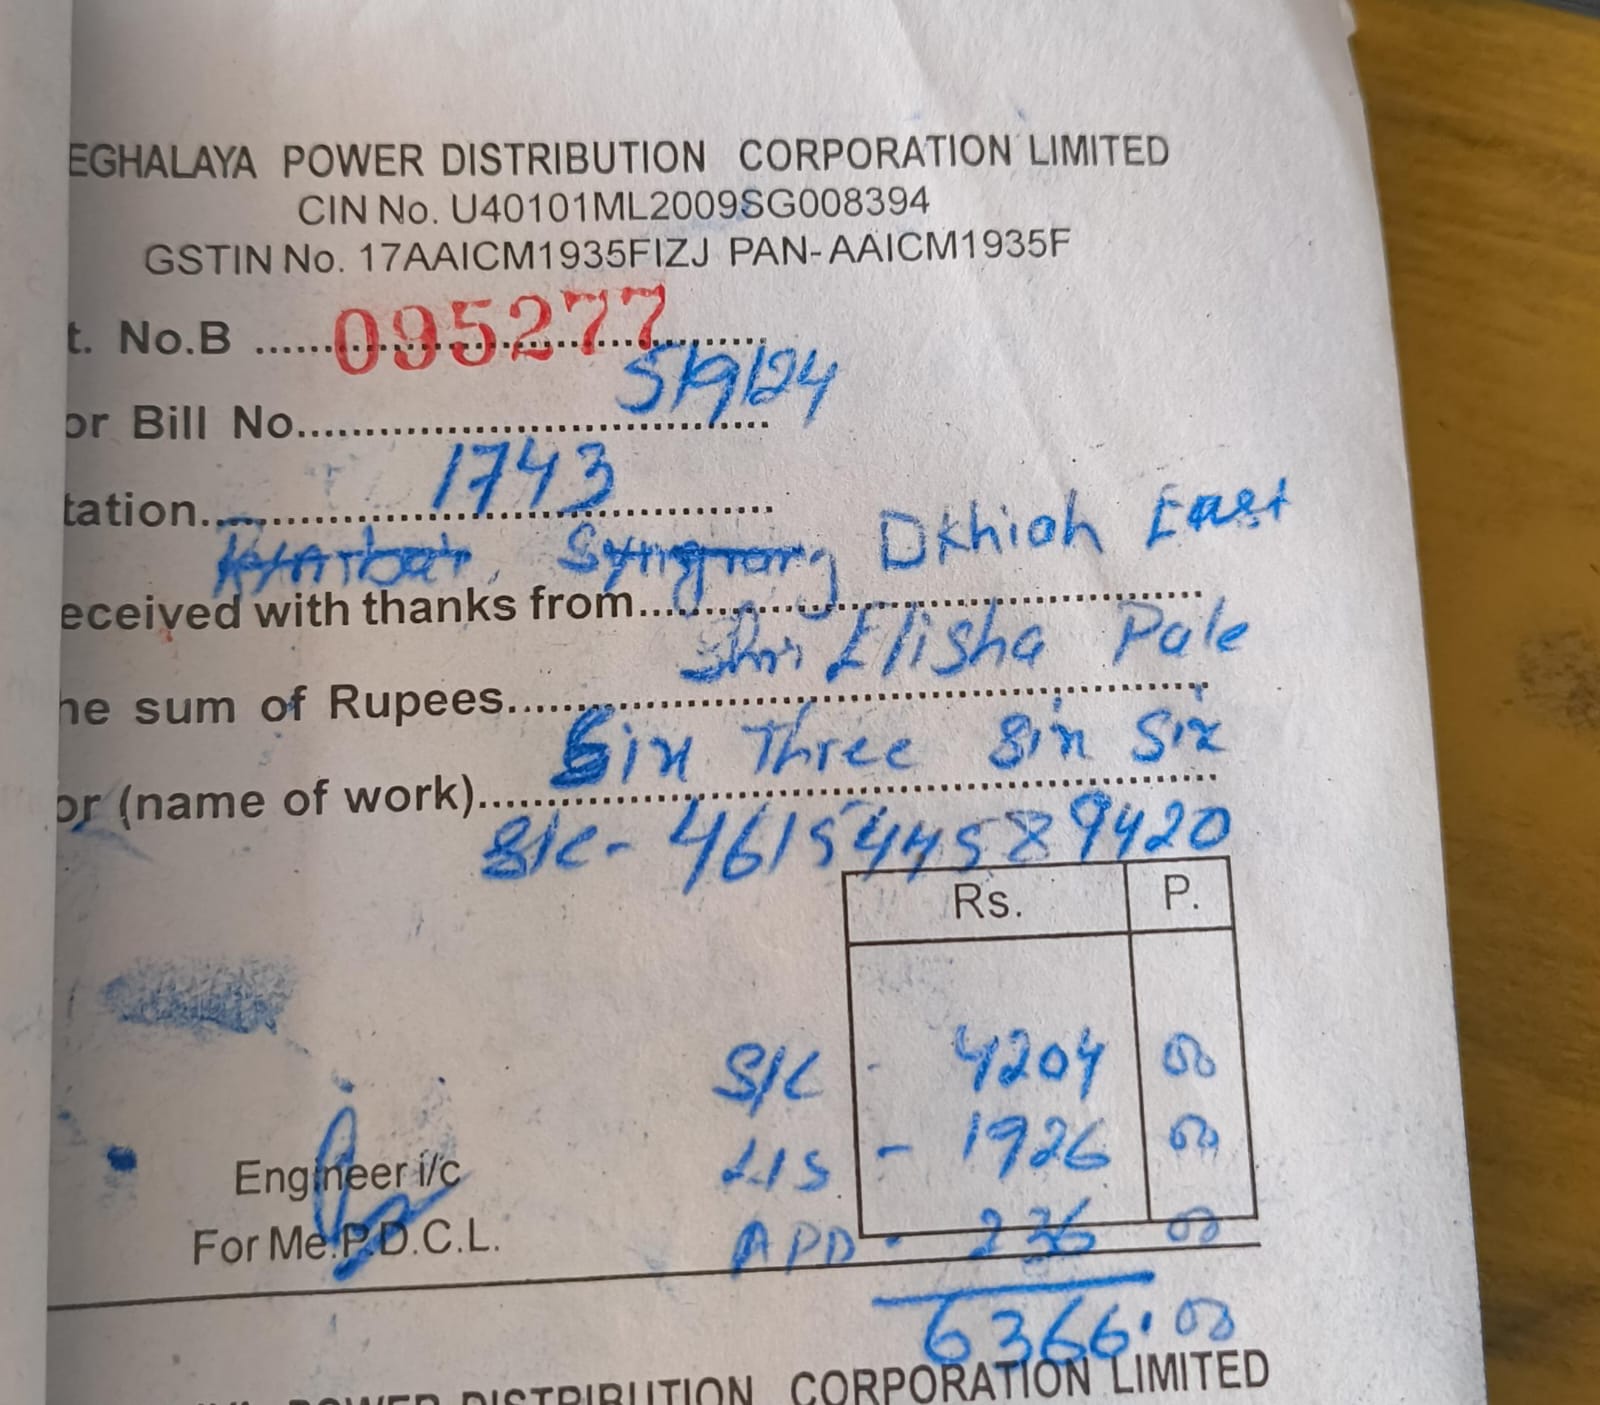 EGHALAYA POWER DISTRIBUTION CORPORATION LIMITED
CIN No. U40101ML2009SG008394
GSTIN No. 17AAICM1935FIZJ PAN-AAICM1935F
t. No.B ......095277
5/9/24
or Bill No..........
1743
tation..........
Dkhiah East
eceived with thanks from..........
Shri Elisha Pale
he sum of Rupees..........
Six Three Six Six
or (name of work)..........
S/C- 4615445899420
Rs. P.
S/C - 4204 00
LIS - 1926 00
Engineer i/c
APD - 236 00
For Me.P.D.C.L.
6366.00
POWER DISTRIBUTION CORPORATION LIMITED